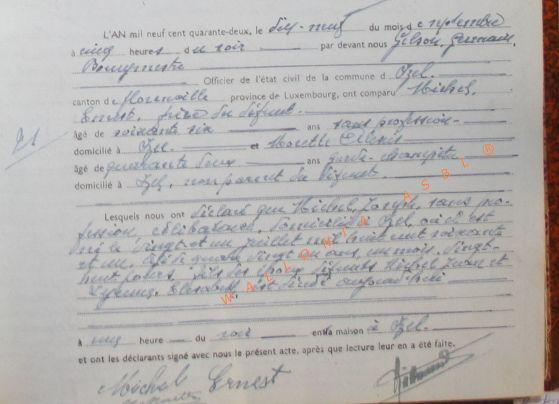 L'AN mil neuf cent quarante-deux, le dix-neuf du mois de septembre
à cinq heures du soir par devant nous Gilson, Germain,
Bourgmestre
Officier de l'état civil de la commune d'Izel.
canton de Florenville province de Luxembourg, ont comparu Michel
Ernest, frère du défunt
âgé de soixante six ans sans profession
domicilié à Izel. et
âgé de quarante deux ans garde-champêtre
domicilié à Izel, non parent du défunt
Lesquels nous ont déclaré que Michel, Joseph, sans pro-
fession, célibataire, domicilié à Izel, où il est
né le vingt et un juillet mil huit cent soixante
et un, âgé de quatre vingt un ans, un mois, vingt-
huit jours, fils des époux défunts Michel et
Elisabeth, est décédé aujourd'hui
à cinq heure du soir en sa maison à Izel.
et ont les déclarants signé avec nous le présent acte, après que lecture leur en a été faite.
Michel Ernest
21
WALLONIA ASBL ®